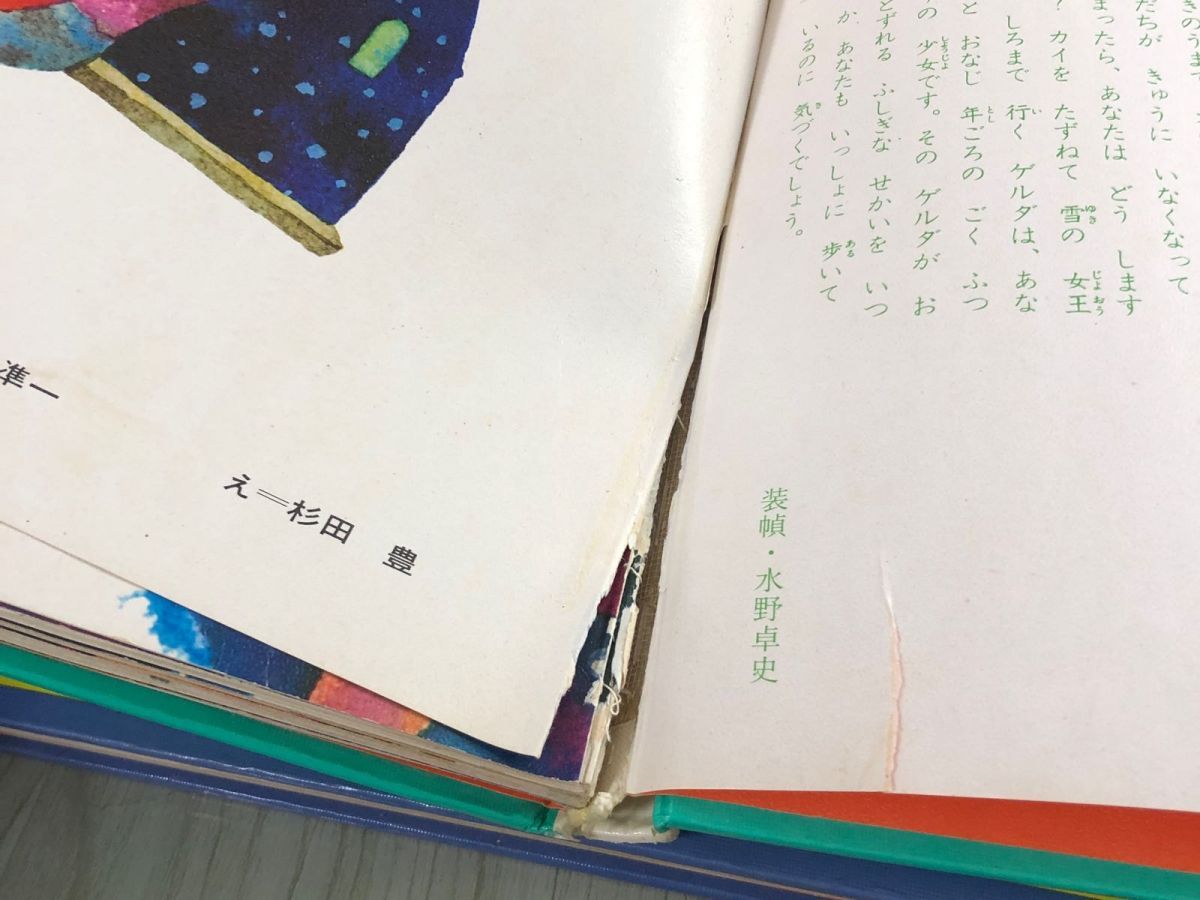 きのうま
だちが きゅうに いなくなって
まったら、あなたは どう します
？ カイを たずねて 雪の 女王
しろまで 行く ゲルダは、あな
と おなじ 年ごろの ごく ふつ
の 少女です。その ゲルダが お
とずれる ふしぎな せかいを いつ
か、あなたも いっしょに 歩いて
いるのに 気づくでしょう。
装幀・水野卓史
準一
え＝杉田 豊